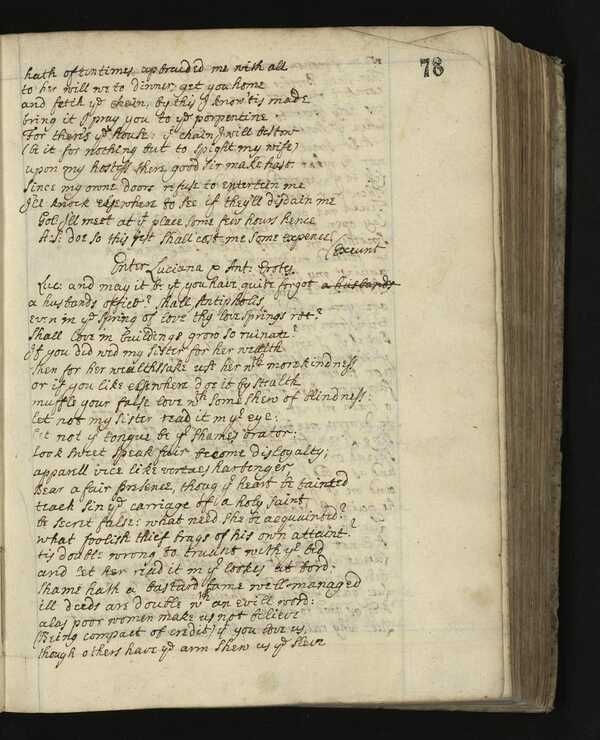 78
hath oftentimes upbraided me with all
to her will we to dinner, get you home
and fetch yᵉ chain, by this I know tis made
bring it I pray you to yᵉ porpentine
For there's yᵉ house: yᵗ chain I will bestow
(be it for nothing but to spight my wife)
upon my hostess there, good sir make hast
Since my owne doors refuse to entertein me
I'le knock elsewhere to see if they'll disdain me
Gol: Ill meet at yᵗ place some few hours hence
A:S: doe so this jest shall cost me some expence
(Exeunt
Enter Luciana & Ant: Erotes.
Luc: and may it be yᵗ you have quite forgot a husbands
a husbands office? shall Antipholis
even in yᵉ spring of love thy love springs rot?
Shall love in buildings grow so ruinate?
If you did wed my sister for her wealth
then for her wealths sake use her wᵗʰ more kindness
or if you like elsewhere doe it by stealth
muffle your false love wᵗʰ some shew of blindness:
let not my sister read it in yʳ eye:
let not yʳ tongue be yʳ shames orator:
Look sweet speak fair become disloyalty;
apparell vice like vertues harbenger,
Bear a fair presence, thoug yʳ heart be tainted
teach sin yᵉ carriage of a holy saint
be secret false: what need she be acquainted?
what foolish thief brags of his own attaint?
tis double wrong to truant with yʳ bed
and let her read it in yʳ lookes at bord:
shame hath a bastard fame well managed
ill deeds are double wᵗʰ an evill word:
alas poor women make us not believe
(Being compact of credit) if you love us,
though others have yᵉ arm shew us yᵉ sleiv